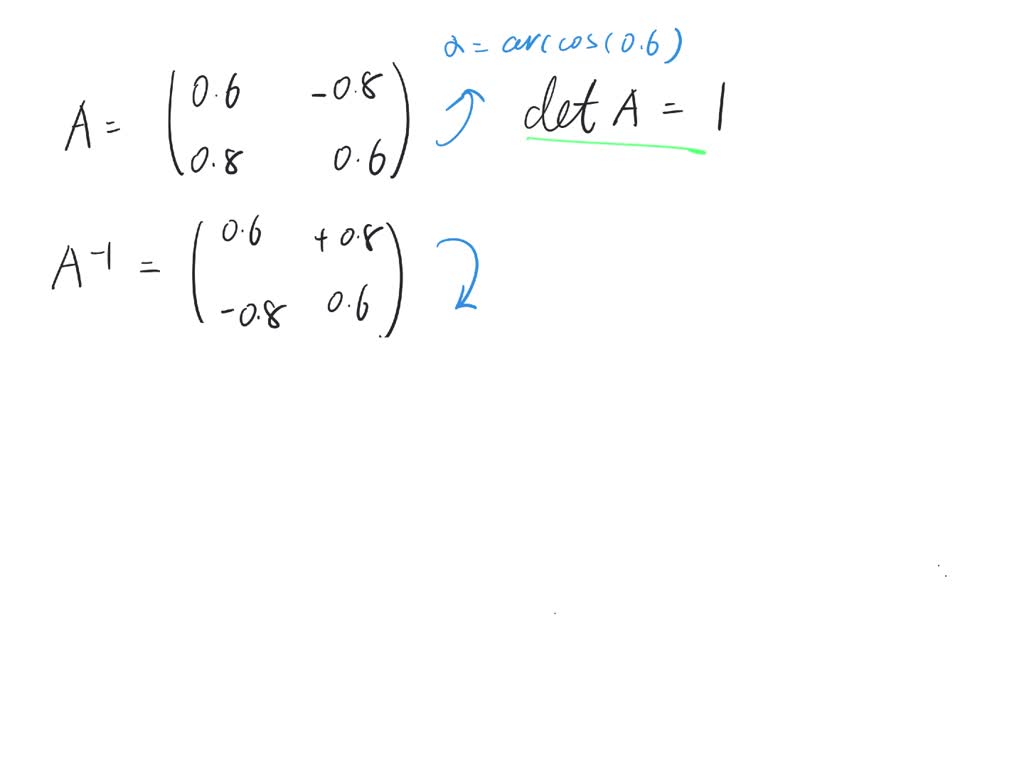 α = arccos(0.6)
A = (0.6 -0.8
0.8 0.6) det A = 1
A⁻¹ = (0.6 +0.8
-0.8 0.6)